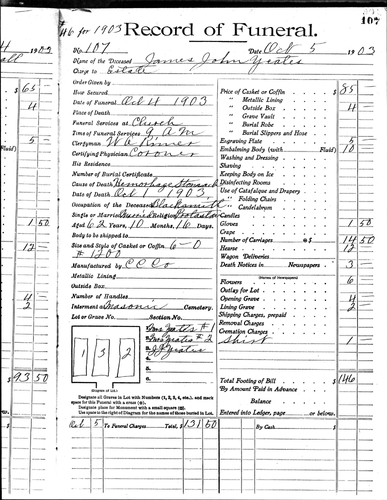 107
46 for 1903
Record of Funeral.
No. 107 Date Oct 5 1903
Name of the Deceased James John Yeates
Charge to Estate
Order Given by
Hour Secured
Date of Funeral Oct 4 1903
Place of Death
Funeral Services at Church
Time of Funeral Services 9 A M
Clergyman W A
Certifying Physician Coroner
His Residence
Number of Burial Certificate
Cause of Death Hemorhage Stomach
Date of Death Oct 1 1903
Occupation of the Deceased Blacksmith
Single or Married Married Religion Protestant
Aged 62 Years, 10 Months, 16 Days.
Body to be shipped to
Size and Style of Casket or Coffin 6-0
# 1200
Manufactured by C C Co
Metallic Lining
Outside Box
Number of Handles
Interment Masonic Cemetery.
Lot or Grave No. Section No.
Yeates # 1
Yeates # 2
J J Yeates
1 3 2
(Diagram of Lot.)
Designate all Graves in Lot with Numbers (1, 2, 3, 4, etc.), and mark space for this Funeral with a cross (x).
Designate place for Monument with a small square (□).
Use space to the right of Diagram for the names of those buried in Lot.
Oct 5 To Funeral Charges Total, $ 131 50
Price of Casket or Coffin 85
" Metallic Lining
" Outside Box 4
" Grave Vault
" Burial Robe
" Burial Slippers and Hose
Engraving Plate 5
Embalming Body (with Fluid) 10
Washing and Dressing
Shaving
Keeping Body on Ice
Disinfecting Rooms
Use of Catafalque and Drapery
" Folding Chairs
" Candelabrum
Candles
Gloves 1 50
Crape
Number of Carriages @$ 14 50
Hearse 12
Wagon Deliveries
Death Notices in Newspapers 3
(Names of Newspapers)
Flowers 6
Outlay for Lot
Opening Grave 4
Lining Grave 2
Shipping Charges, prepaid
Removal Charges
Cremation Charges
Shirt 1
Total Footing of Bill $146
By Amount Paid in Advance
Balance
Entered into Ledger, page or below.
By Cash $
4 1902
$ 65
4
5
Fluid)
1 50
12
4
2
$ 93 50